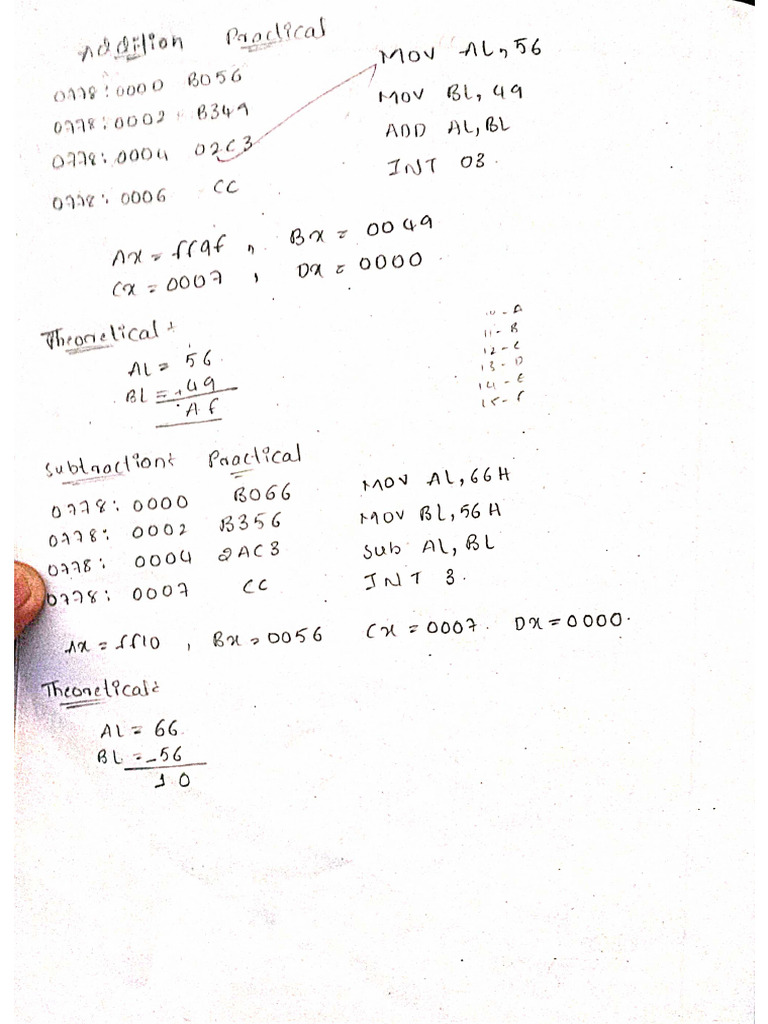 Addition Practical
0778:0000 B056 MOV AL, 56
0778:0002 B349 MOV BL, 49
0778:0004 02C3 ADD AL, BL
0778:0006 CC INT 03.
Ax = ff9f, Bx = 0049
Cx = 0007, Dx = 0000
Theoretical:
AL = 56
BL = 49
Af
10 - A
11 - B
12 - C
13 - D
14 - E
15 - F
Subtraction: Practical
0778: 0000 B066 MOV AL, 66H
0778: 0002 B356 MOV BL, 56H
0778: 0004 2AC3 Sub AL, BL
0778: 0007 CC INT 3.
Ax = ff10, Bx = 0056 Cx = 0007. Dx = 0000.
Theoretical:
AL = 66.
BL = -56
10